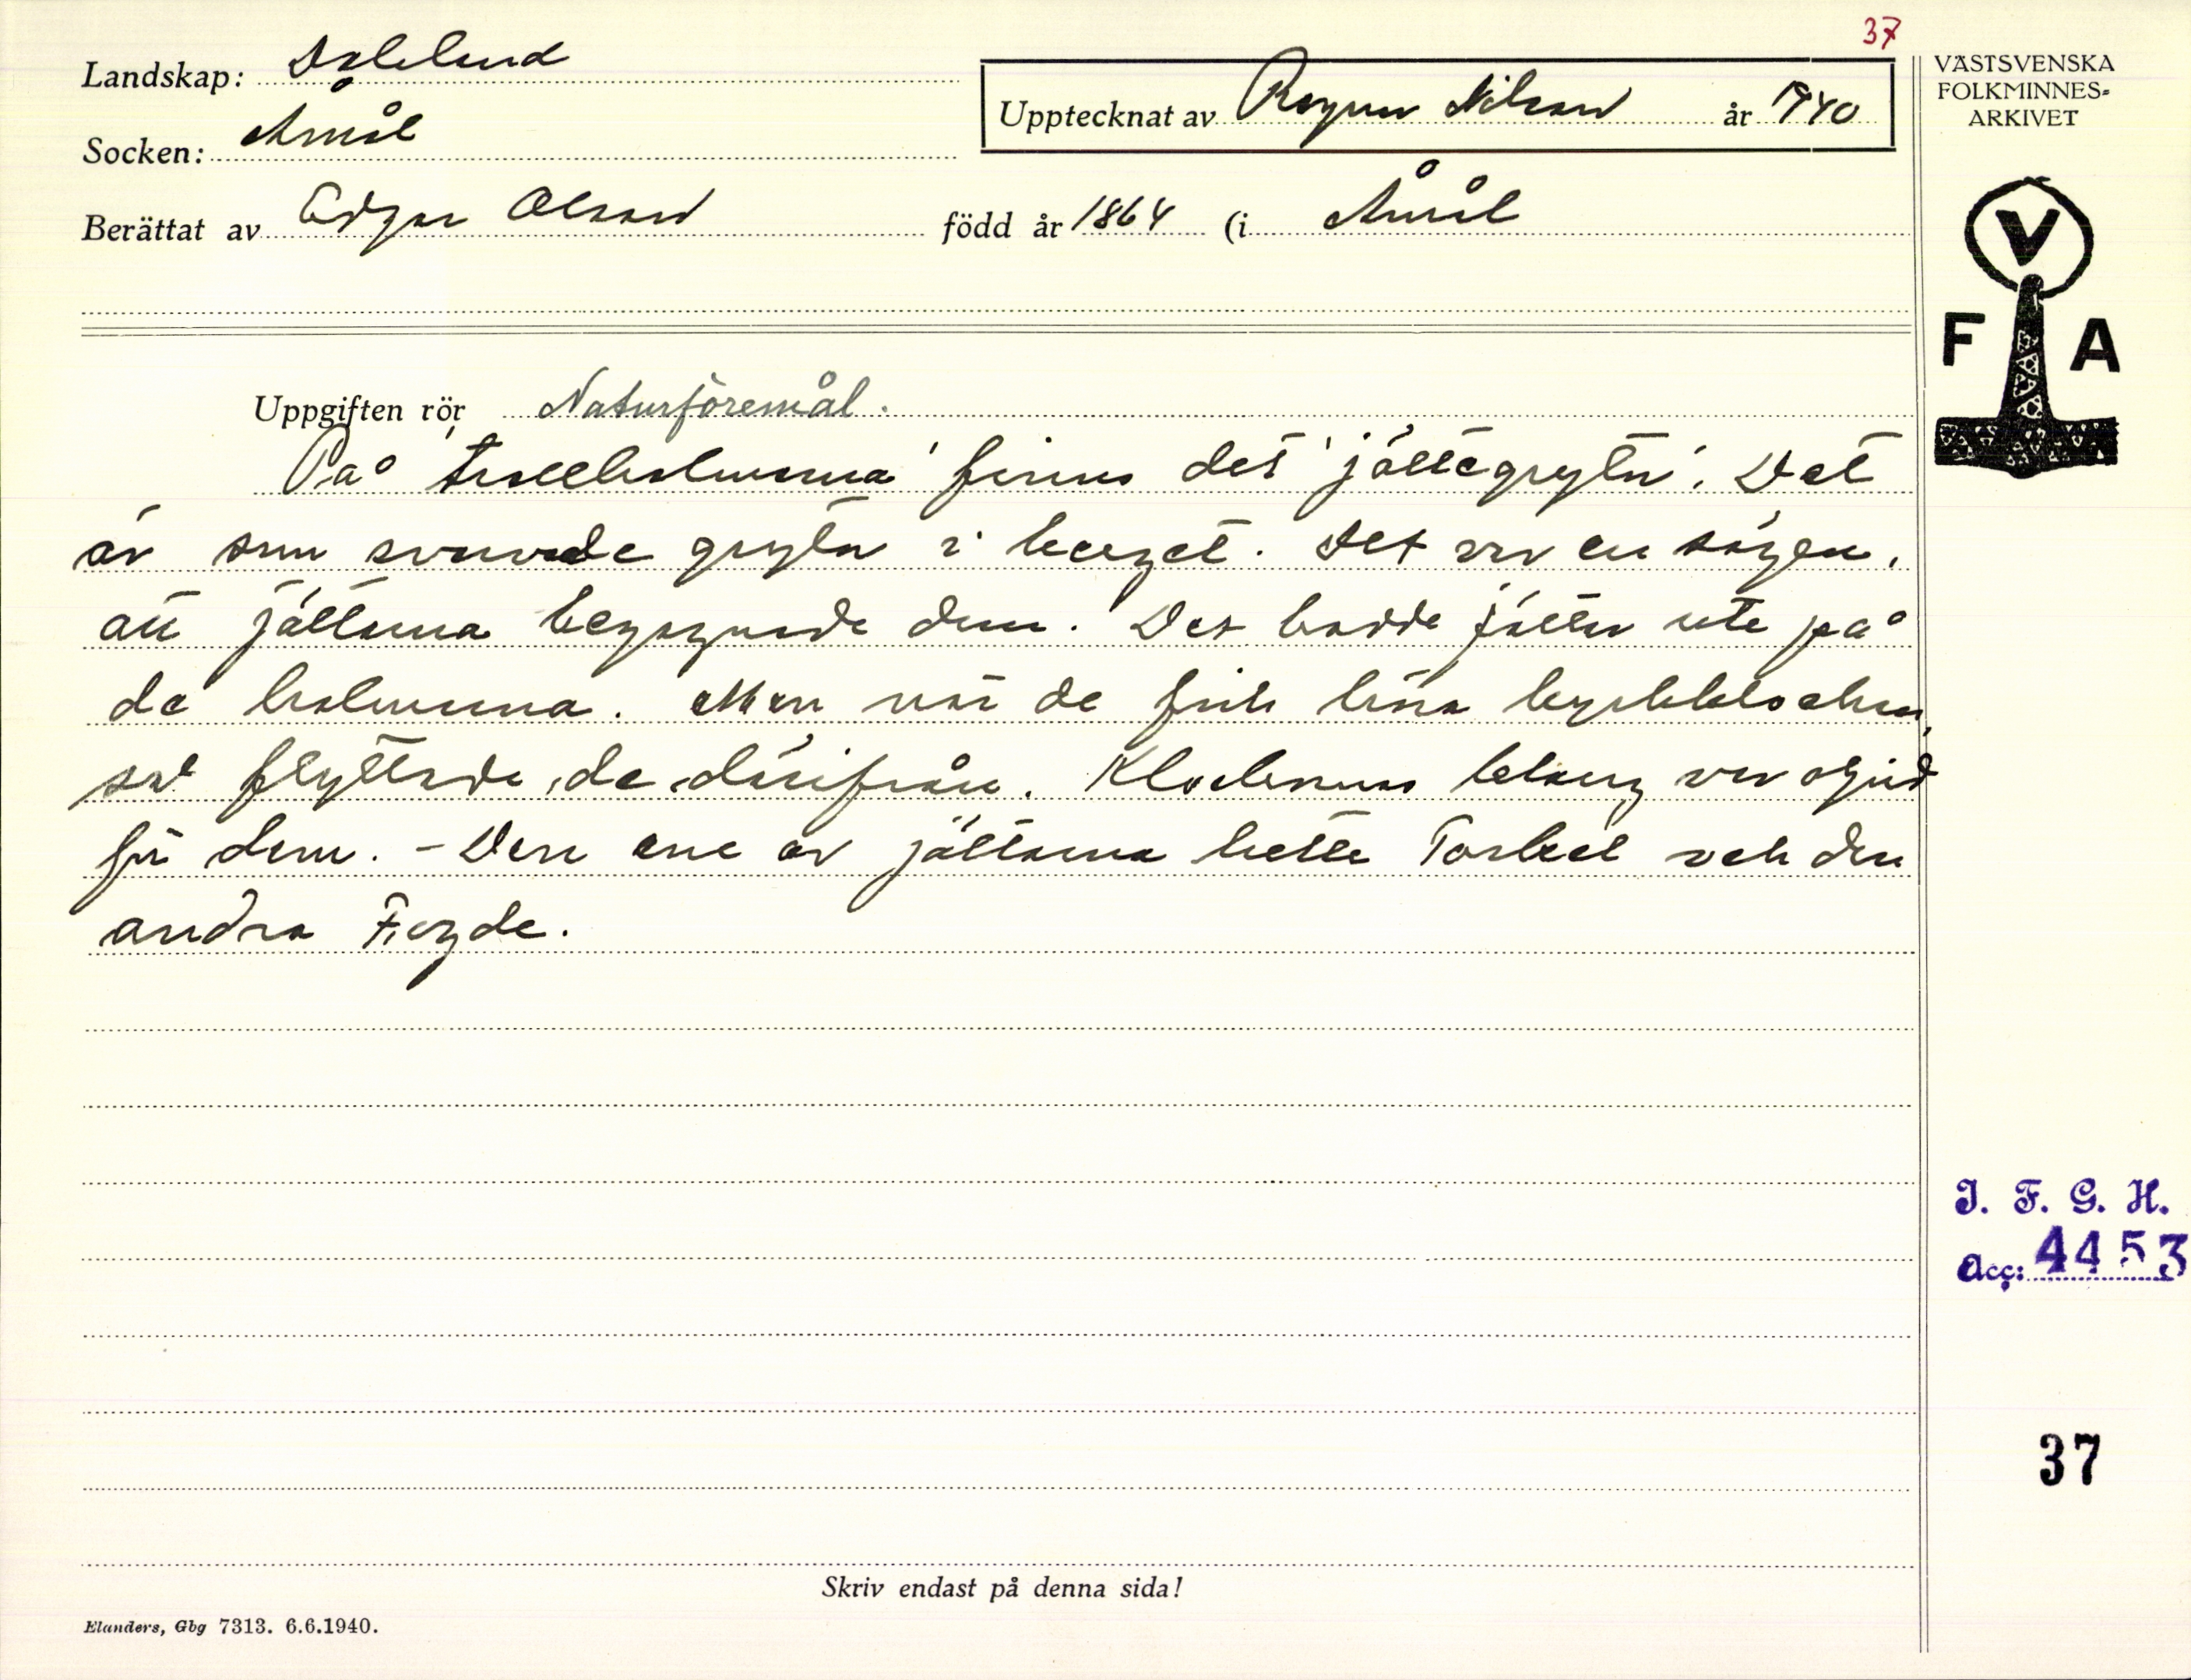 37
Landskap: Dalsland
Upptecknat av Ragnar Nilsson år 1940
VÄSTSVENSKA
FOLKMINNES-
ARKIVET
Socken: Åmål
Berättat av Edgar Olsson född år 1864 (i Åmål
V
F A
Uppgiften rör Naturföremål.
På 'trollholmarna' finns det 'jättegrytor'. Det
är som svarvade grytor i berget. Det var en sägen,
att jättarna begagnade dem. Det bodde jättar ute på
de holmarna. Men när de fick höra kyrkklockan,
så flyttade de därifrån. Klockornas klang var
för dem. – Den ene av jättarna hette Torkel och den
andra Frygde.
I. F. G. H.
Acc: 4453
37
Skriv endast på denna sida!
Elanders, Gbg 7313. 6.6.1940.